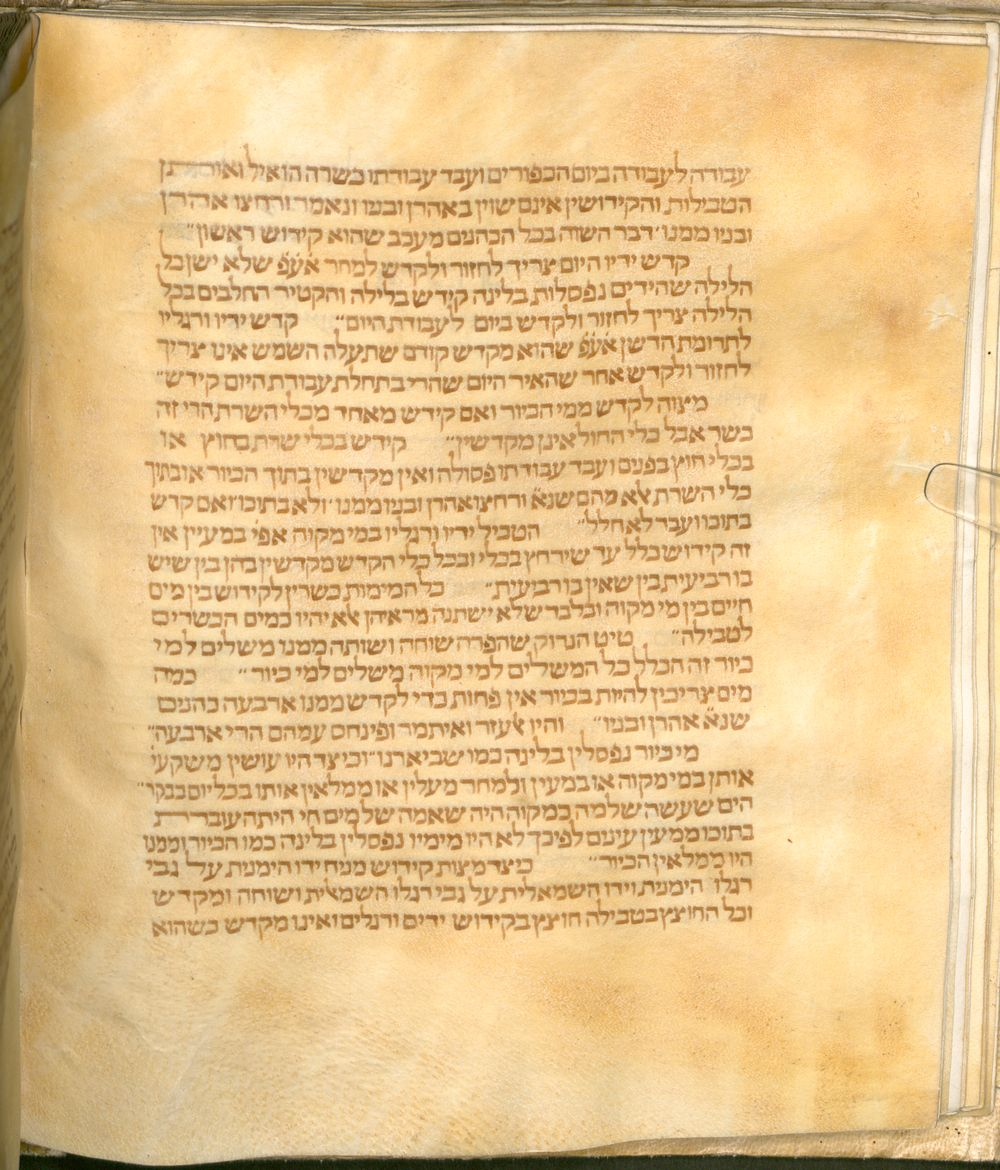 עבודה לעבודה ביום הכפורים ועבד עבודתו כשרה הואיל ואותן
הטבילות והקידושין אינם שוין באהרן ובניו ונאמר ורחצו אהרן
ובניו ממנו דבר השוה בכל הכהנים מעכב שהוא קידוש ראשון״
קדש ידיו היום צריך לחזור ולקדש למחר אעפ שלא ישן כל
הלילה שהידים נפסלות בלינה קידש בלילה והקטיר החלבים בכל
הלילה צריך לחזור ולקדש ביום לעבודת היום״ קדש ידיו ורגליו
לתרומת הדשן אעפ שהוא מקדש קודם שתעלה השמש אינו צריך
לחזור ולקדש אחר שהאיר היום שהרי בתחלת עבודת היום קידש״
מצוה לקדש ממי הכיור ואם קידש מאחד מכלי השרת הרי זה
כשר אבל כלי החול אינן מקדשין״ קידש בכלי שרת בחוץ או
בכלי חוץ בפנים ועבד עבודתו פסולה ואין מקדשין בתוך הכיור או בתוך
כלי השרת אלא מהם שנא ורחצו אהרן ובניו ממנו ולא בתוכו ואם קדש
בתוכו ועבד לא חלל״ הטביל ידיו ורגליו במי מקוה אפי במעיין אין
זה קידוש כלל עד שירחץ בכלי ובכל כלי הקדש מקדשין בהן בין שיש
בו רביעית בין שאין בו רביעית״ כל המימות כשרין לקידוש בין מים
חיים בין מי מקוה ובלבד שלא ישתנה מראיהן אלא יהיו כמים הכשרים
לטבילה״ טיט הנרוק שהפרה שוחה ושותה ממנו משלים למי
כיור זה הכלל כל המשלים למי מקוה משלים למי כיור״ כמה
מים צריכין להיות בכיור אין פחות כדי לקדש ממנו ארבעה כהנים
שנא אהרן ובניו״ והיו אלעזר ואיתמר ופינחס עמהם הרי ארבעה״
מי כיור נפסלין בלינה כמו שביארנו״ וכיצד היו עושין משקעי
אותן במי מקוה או במעין ולמחר מעלין או ממלאין אותו בכל יום בבקר״
הים שעשה שלמה כמקוה היה שאמה של מים חי היתה עוברת
בתוכו ממעין עיטם לפיכך לא היו מימיו נפסלין בלינה כמו הכיור וממנו
היו ממלאין הכיור״ כיצד מצות קידוש מניח ידו הימנית על גבי
רגלו הימנית וידו השמאלית על גבי רגלו השמאלית ושוחה ומקדש
וכל החוצץ בטבילה חוצץ בקידוש ידים ורגלים ואינו מקדש כשהוא